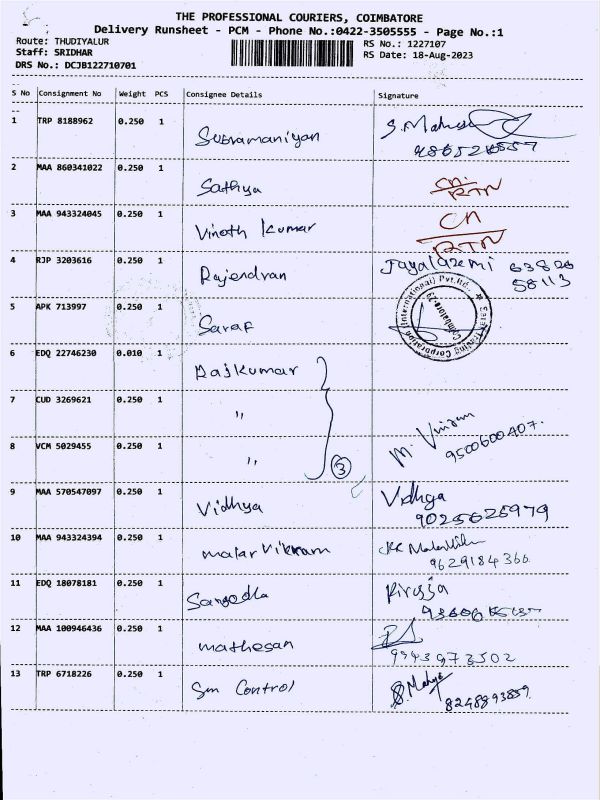 THE PROFESSIONAL COURIERS, COIMBATORE
Delivery Runsheet - PCM - Phone No.:0422-3505555 - Page No.:1
Route: THUDIYALUR RS No.: 1227107
Staff: SRIDHAR RS Date: 18-Aug-2023
DRS No.: DCJB122710701
S No Consignment No Weight PCS Consignee Details Signature
1 TRP 8188962 0.250 1 Subramaniyan S. Mahesh
2 MAA 860341022 0.250 1 Sathya CN RTN
3 MAA 943324045 0.250 1 Vinoth Kumar CN
RTN
4 RJP 3203616 0.250 1 Rajendran Jayalaxmi 63826
58113
5 APK 713997 0.250 1 Saraf Saraf Trading Corporation (International) Pvt.ltd., Coimbatore-29
6 EDQ 22746230 0.010 1 Rajkumar
7 CUD 3269621 0.250 1 "
8 VCM 5029455 0.250 1 " 3 M. 9500600407.
9 MAA 570547097 0.250 1 Vidhya Vidhya
9025625979
10 MAA 943324394 0.250 1 malar Vikram
9629184366
11 EDQ 18078181 0.250 1
12 MAA 100946436 0.250 1 mathesan
9943973502
13 TRP 6718226 0.250 1 Sm Control
8248893859